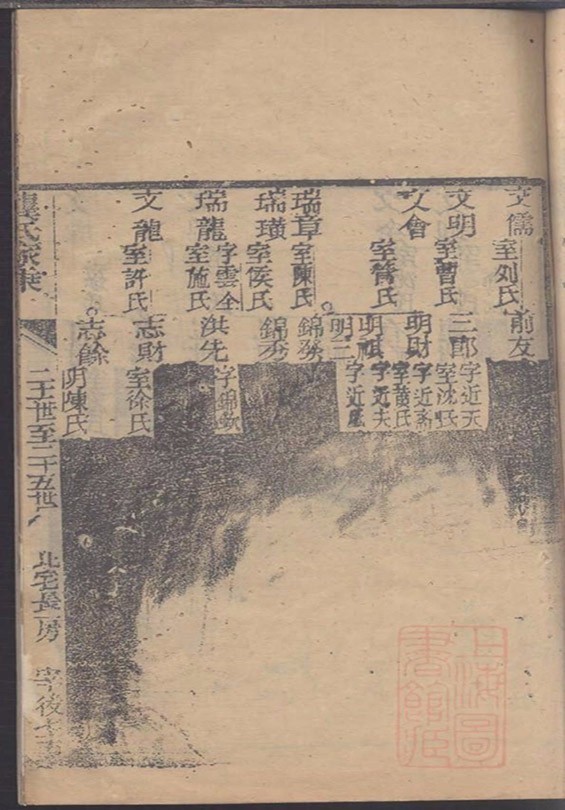 文儒
室刘氏
前友
文明
室曹氏
三郎
字近天
室沈氏
文會
室龔氏
明財
字近斋
室黄氏
明祺
字近夫
明三
字近
瑞章
室陳氏
錦發
瑞璜
室侯氏
錦芬
瑞龍
字雲全
室施氏
洪先
字錦
文龍
室許氏
志財
室徐氏
志餘
明陳氏
氏家乗
二十一世至二十五世
北宅長房
上海圖書館藏